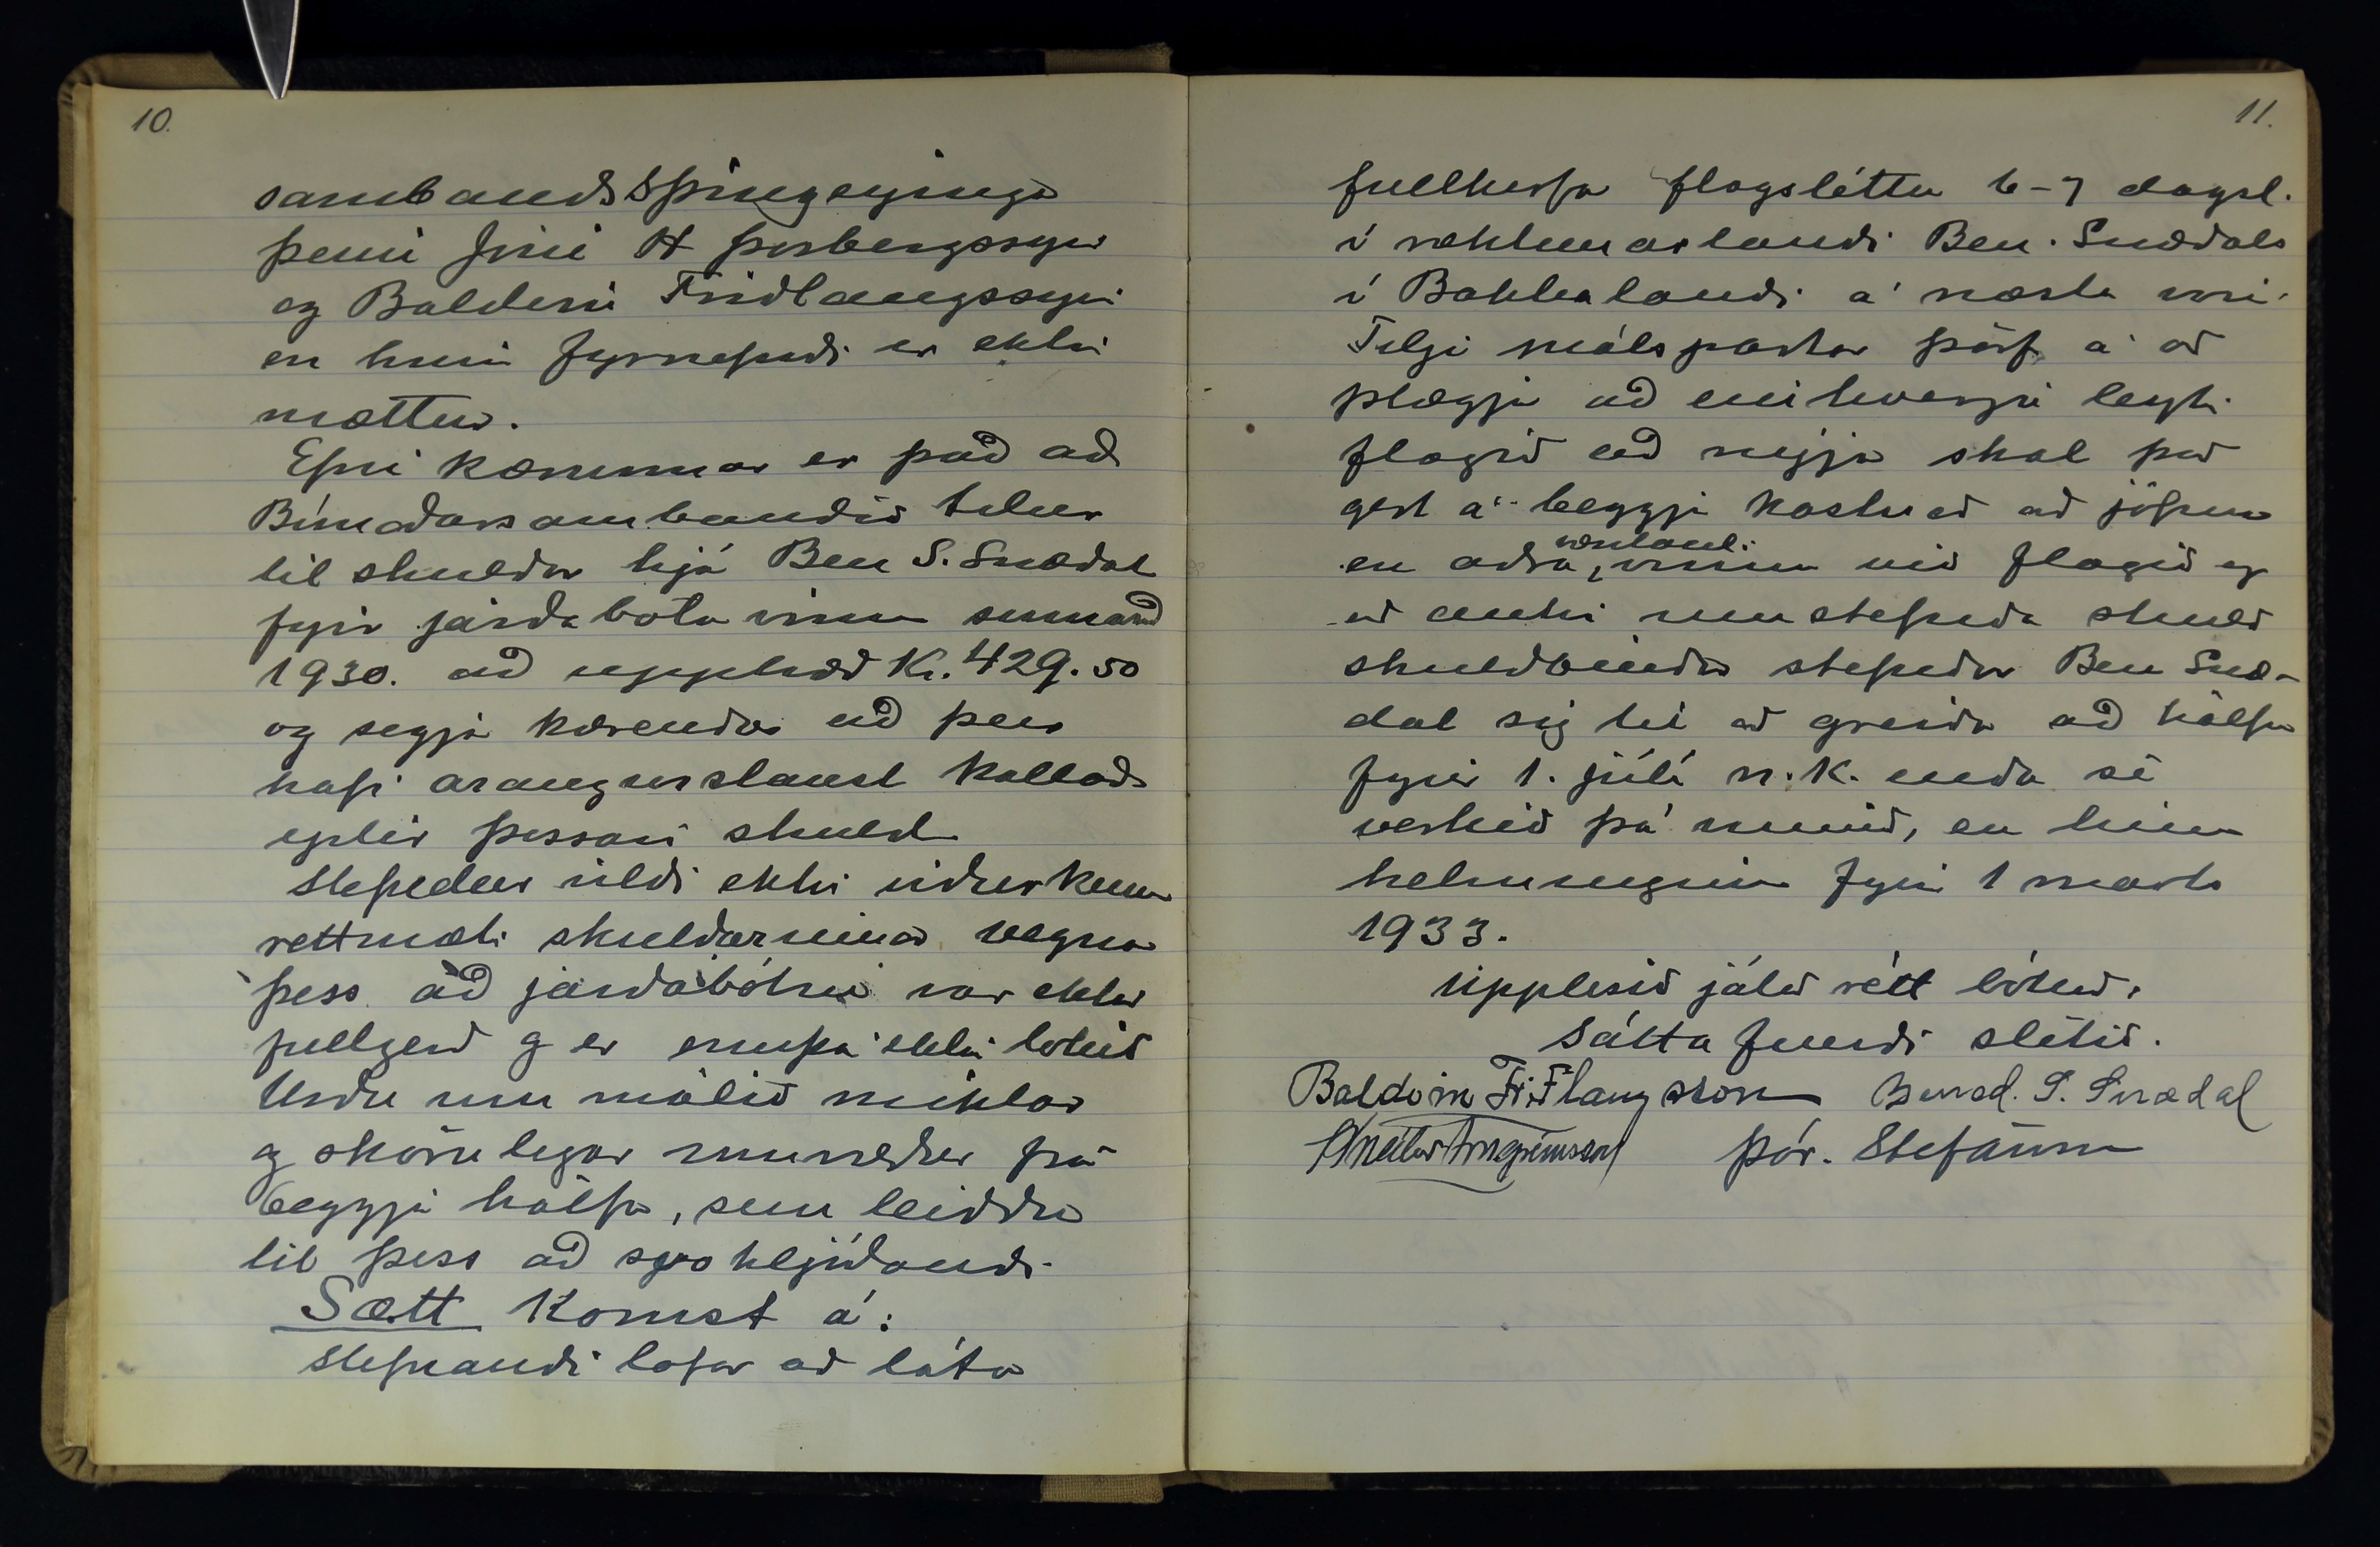 10.
sambands S þingeyinga
þeim Jóni H Þorbergssyni
og Baldvini Friðlaugssyni
en hinn fyrnefndi er ekki
mættur.
Efni kærunnar er það að
Búnaðarsambandið telur
til skuldar hjá Ben S. Snædal
fyrir jarðabóta vinnu sumarið
1930. að upphæð Kr. 429.50
og segja kærendur að þeir
hafi arangurslaust kallað
eptir þessari skuld
Stefndur vildi ekki viðurkenna
rettmæti skuldarinnar vegna
þess að jarðabótin var ekki
fullgerð og er ennþá ekki lokið
Urðu um málið miklar
og skörulegar umræður frá
beggja hálfu, sem leiddu
til þess að svohljóðandi
Sætt Komst á:
Stefnandi lofar að láta
11.
fullherfa flagsléttu 6-7 dagsl.
í ræktunarlandi Ben. Snædals
í Bakkalandi á næsta vori.
Telji málspartar þörf á að
plægja að einhverju leyti
flagið að nýju skal það
gert á beggja kostnað að jöfnu
en aðra, væntanl. vinnu við flagið og
að auki umstefnda skuld
skuldbindur stefndur Ben Snæ-
dal sig til að greiða að hálfu
fyrir 1. júlí n.k. enda sé
verkið þá unnið, en hinn
helmingurinn fyrir 1 marts
1933.
Upplesið játað rétt bókað.
Sátta fundi slitið.
Baldvin Friðlaugsson Bened. S. Snædal
Arngrímsson Þór. Stefánsson